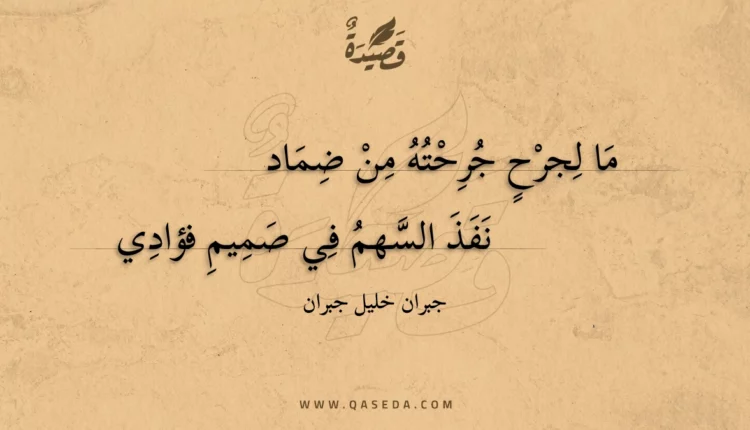 قَصِيْدَةٌ
مَا لِجرْحٍ جُرِحْتُهُ مِنْ ضِمَاد
نَفَذَ السَّهمُ فِي صَمِيمِ فؤادِي
جبران خليل جبران
WWW.QASEDA.COM